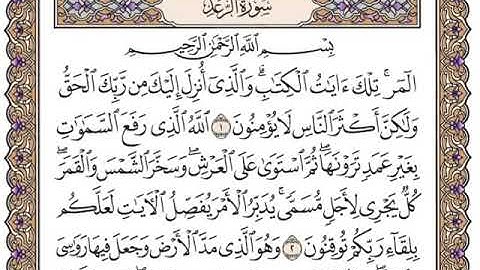 سُورَةُ الرَّعْدِ
بِسْمِ اللَّهِ الرَّحْمَٰنِ الرَّحِيمِ
الٓمٓرۚ تِلْكَ ءَايَٰتُ الْكِتَٰبِۗ وَالَّذِىٓ أُنزِلَ إِلَيْكَ مِن رَّبِّكَ الْحَقُّ
وَلَٰكِنَّ أَكْثَرَ النَّاسِ لَا يُؤْمِنُونَ ١ اللَّهُ الَّذِى رَفَعَ السَّمَٰوَٰتِ
بِغَيْرِ عَمَدٍ تَرَوْنَهَاۖ ثُمَّ اسْتَوَىٰ عَلَى الْعَرْشِۖ وَسَخَّرَ الشَّمْسَ وَالْقَمَرَۖ
كُلٌّ يَجْرِى لِأَجَلٍ مُّسَمًّىۚ يُدَبِّرُ الْأَمْرَ يُفَصِّلُ الْءَايَٰتِ لَعَلَّكُم
بِلِقَآءِ رَبِّكُمْ تُوقِنُونَ ٢ وَهُوَ الَّذِى مَدَّ الْأَرْضَ وَجَعَلَ فِيهَا رَوَٰسِىَ